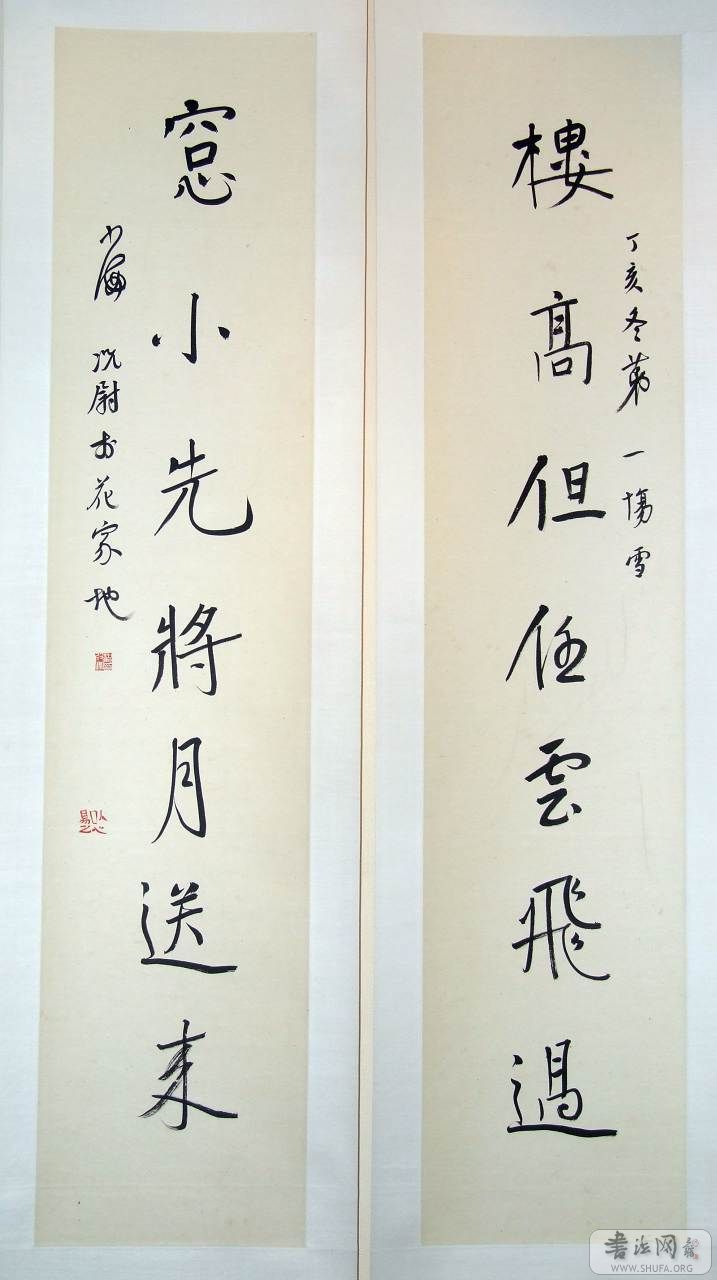 樓高但任雲飛過
丁亥冬第一場雪
窓小先將月送來
小海 沈尉於花家地
書法网
WWW.SHUFA.ORG